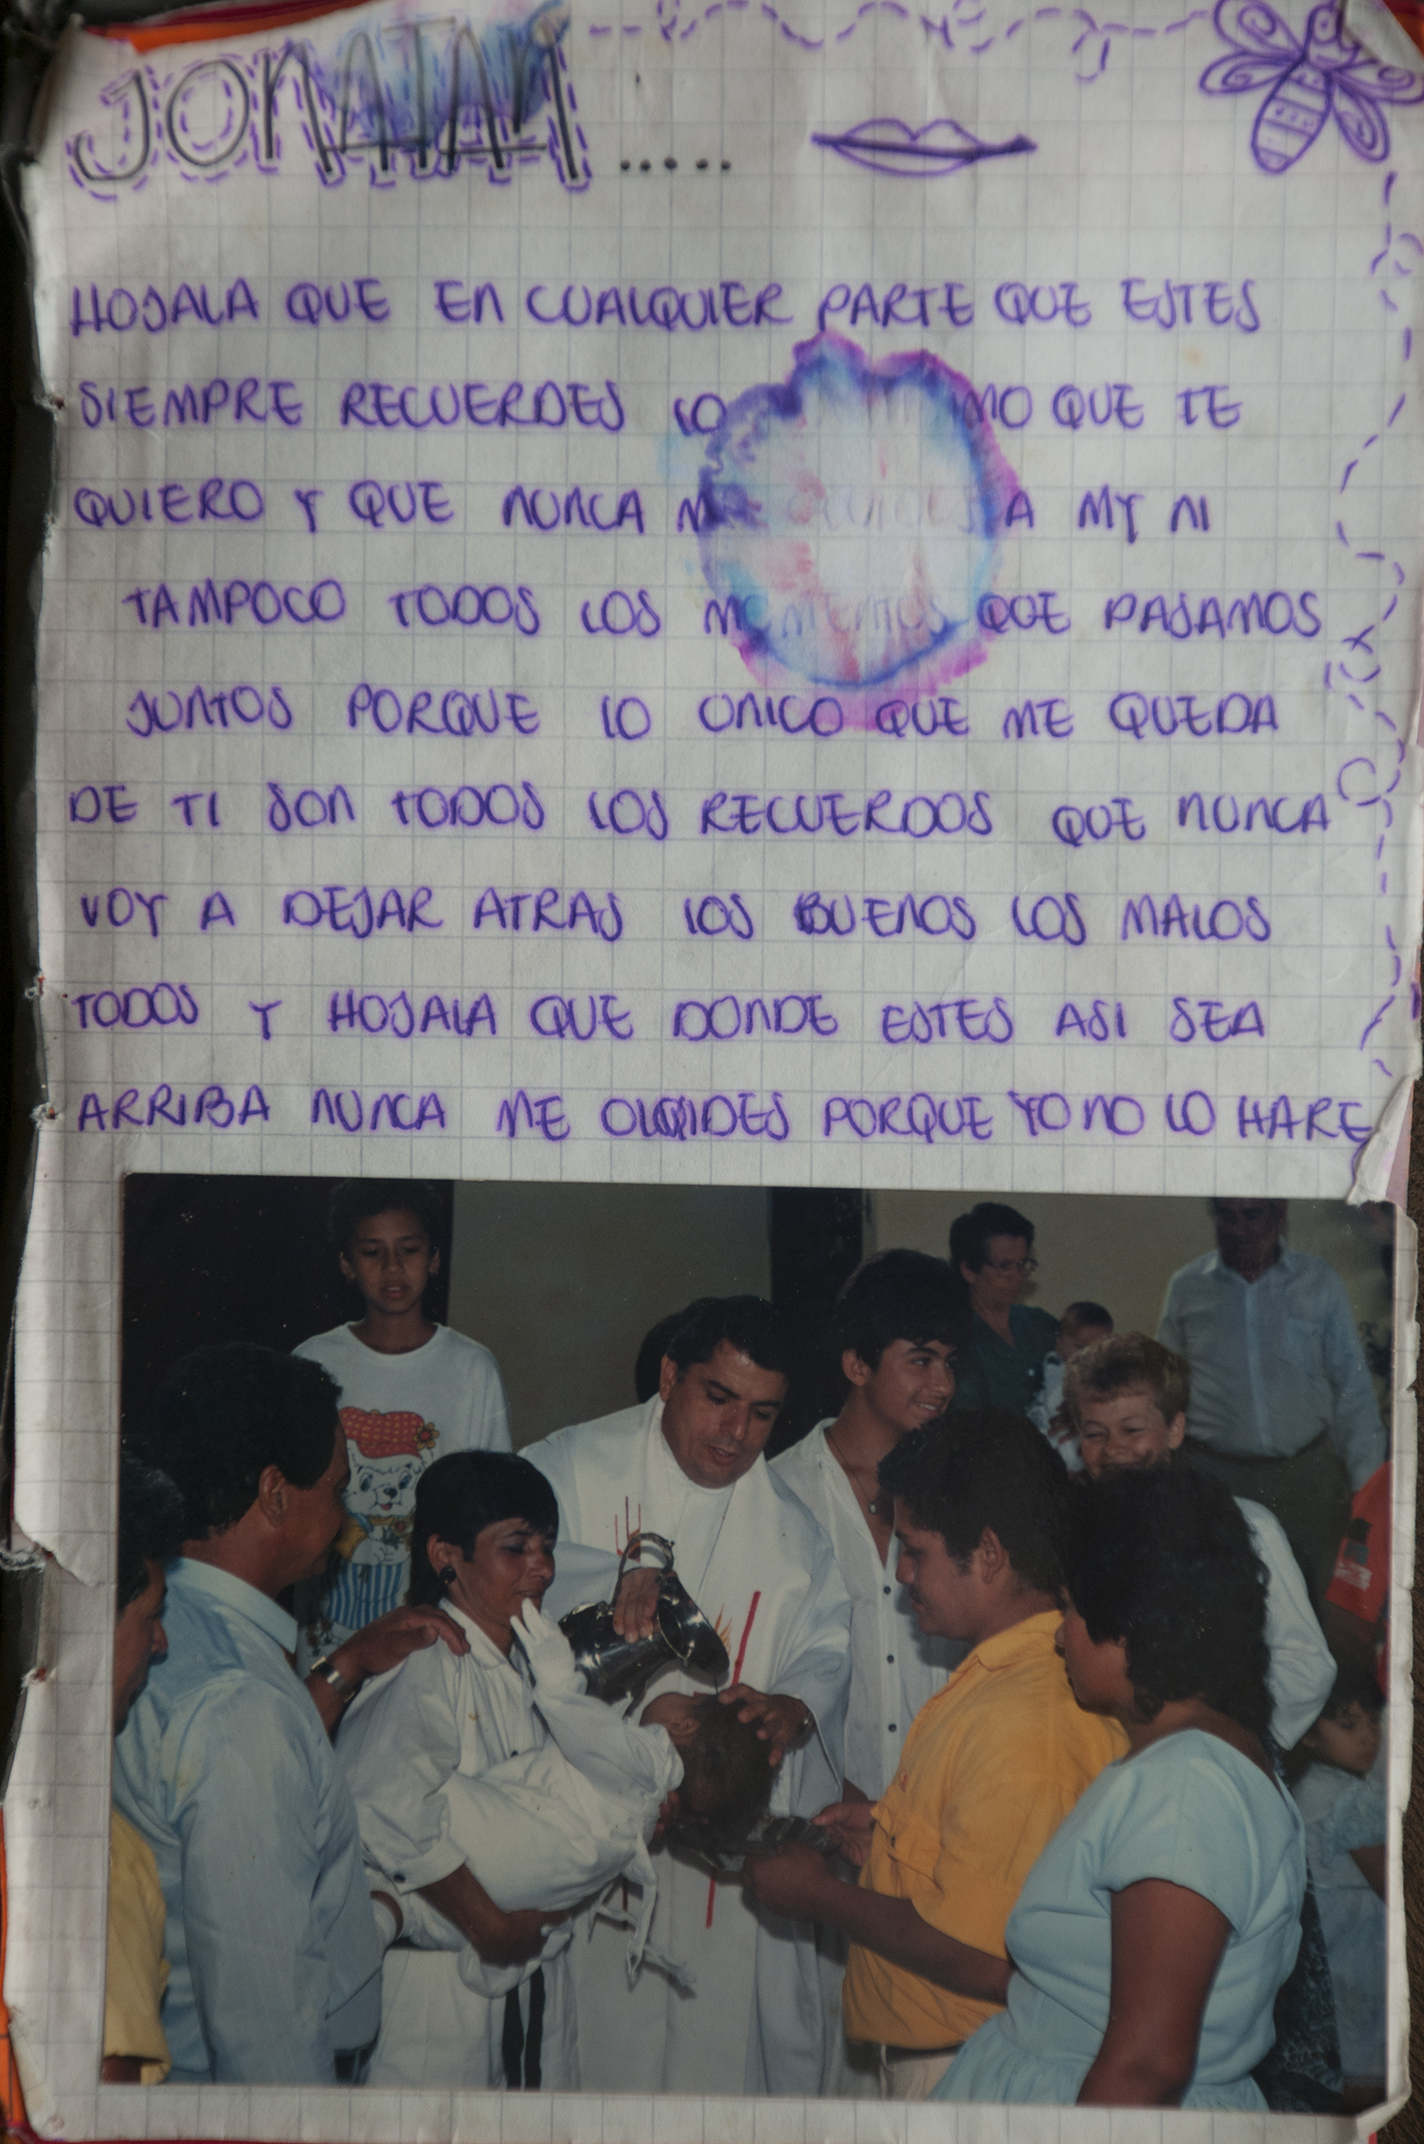 JONATAN .....
HOJALA QUE EN CUALQUIER PARTE QUE ESTES
SIEMPRE RECUERDES LO MO QUE TE
QUIERO Y QUE NUNCA A MY NI
TAMPOCO TODOS LOS MOMENTOS QUE PASAMOS
JUNTOS PORQUE LO UNICO QUE ME QUEDA
DE TI SON TODOS LOS RECUERDOS QUE NUNCA
VOY A DEJAR ATRAS LOS BUENOS LOS MALOS
TODOS Y HOJALA QUE DONDE ESTES ASI SEA
ARRIBA NUNCA ME OLVIDES PORQUE YO NO LO HARE